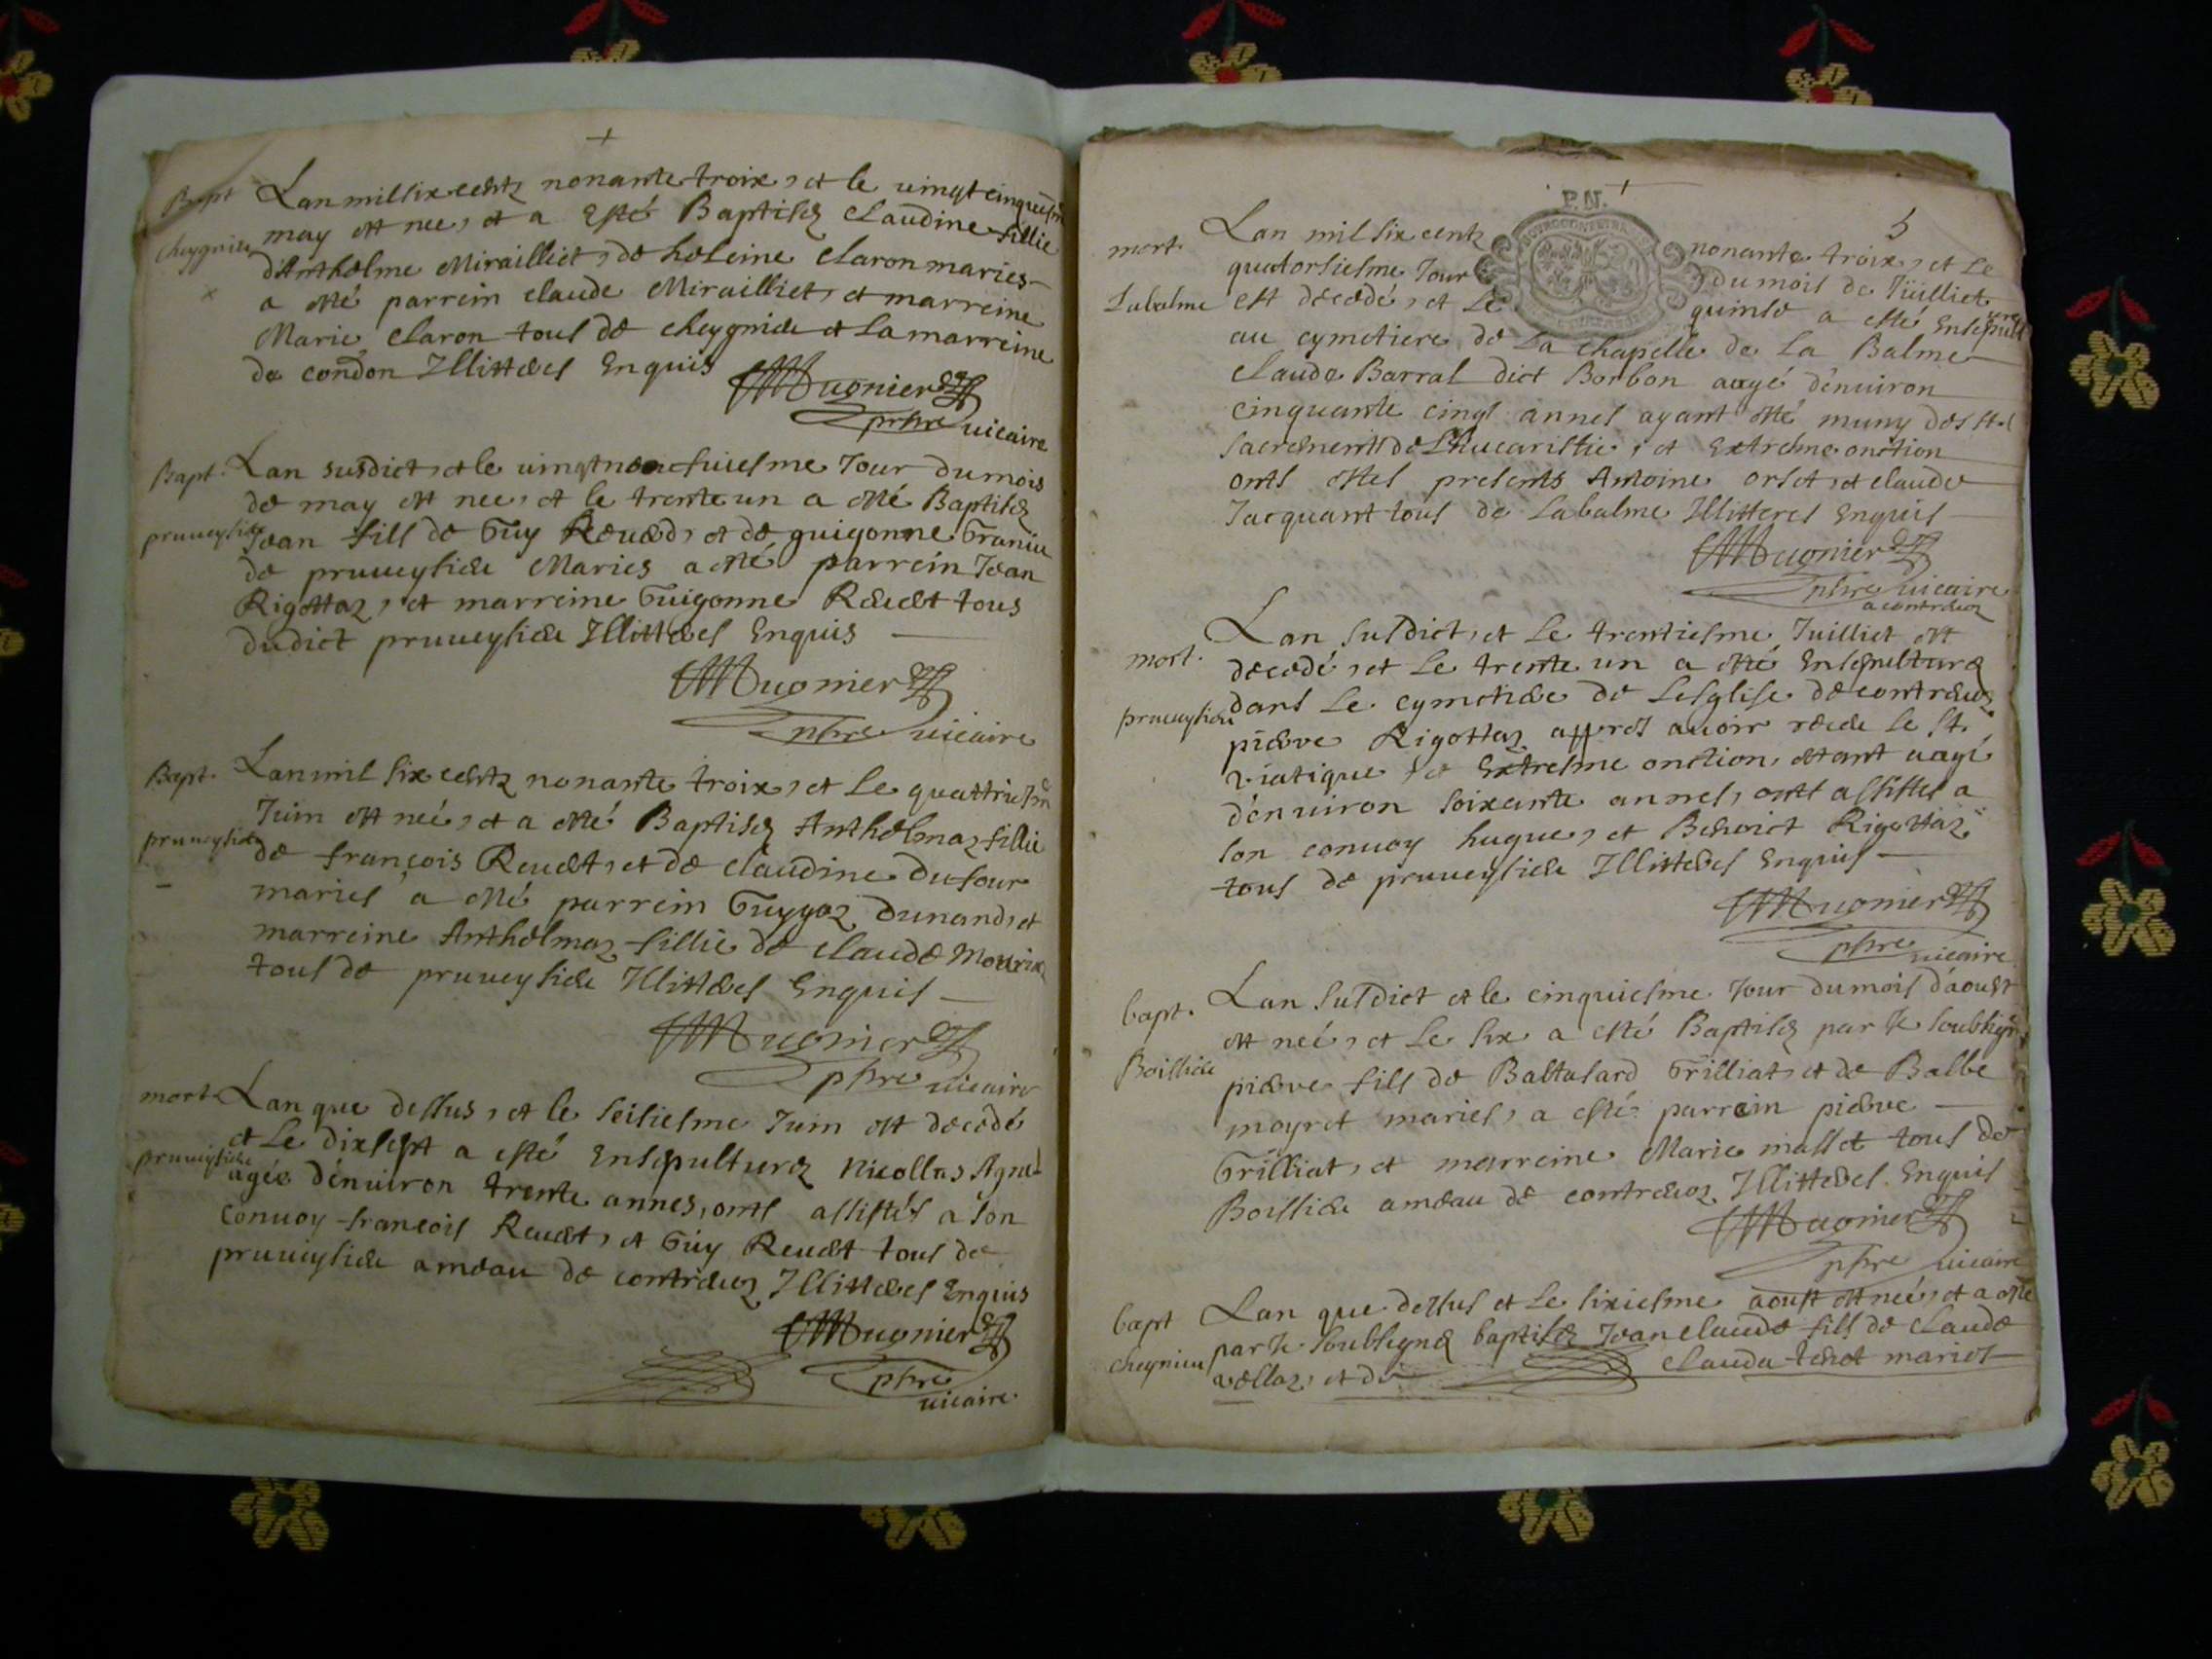 Bapt Lan mil six centz nonante troix, et le uingt cinquiesm
Cheygnieu may est nee, et a Esté Baptisez Claudine fillie
d'Anthelme Mirailliet, de heleine Claron maries
a esté parrein Claude Mirailliet, et marreine
Marie Claron tous de Cheygnieu et la marreine
de condon Illitteres Enquis
Mugnier
pbre uicaire
Bapt. Lan susdict, et le uingt neufuiesme Jour du mois
de may est nee, et le trente un a esté Baptisez
pruueysieu Jean fils de Guy Reuet, et de guigonne Traniu
de pruueysieu Maries a esté parrein Jean
Rigottaz, et marreine Guigonne Reuet tous
dudict pruueysieu Illitteres Enquis
Mugnier
pbre uicaire
Bapt. Lan mil six centz nonante troix, et Le quattriesm
Juin est neé, et a esté Baptisez Anthelmaz fillie
pruueysieu de françois Reuet, et de Claudine Dufour
maries a esté parrein Guygoz Dunand, et
marreine Anthelmaz fillie de Claude Mourix
tous de pruueysieu Illitteres Enquis
Mugnier
pbre uicaire
mort Lan que dessus, et le seisiesme Juin est decedé
et Le dixsept a esté Ensepulturez Nicollas Agnel
pruueysieu agée d'enuiron trente annes, onts assistés a son
Conuoy françois Reuet, et Guy Reuet tous de
pruueysieu ameau de contreuoz Illitteres Enquis
Mugnier
pbre
uicaire
P.N.
5
mort. Lan mil six centz nonante troix, et Le
quatorsiesme Jour du mois de Juilliet
Labalme est decedé, et Le quinse a esté Ensepult
urez
au cymetiere de La chapelle de La Balme
Claude Barral dict Borbon aagé d'enuiron
cinquante cinqt annes ayant esté muny des sts
sacrements de L'Eucaristie, et Extreme onction
onts estes presents Antoine orset, et claude
Jacquant tous de Labalme Illitteres Enquis
Mugnier
pbre uicaire
a contreuoz
mort. Lan susdict, et Le trentiesme Juilliet est
decedé, et Le trente un a esté Ensepulturez
pruueysieu dans Le cymetiere de Lesglise de contreuoz
pierre Rigottaz appres auoir receu Le St.
viatique, et Extresme onction, estant aagé
d'enuiron soixante annes, onts assistes a
son conuoy hugue, et Benoict Rigottaz
tous de pruueysieu Illitteres Enquis
Mugnier
pbre uicaire
bapt. Lan susdict et le cinquiesme Jour du mois d'aoust
est neé, et Le six a esté Baptisez par Je soubsigné
Boissieu pierre fils de Baltasard Trilliat, et de Balbe
mayret maries, a esté parrein pierre
Trilliat, et marreine Marie masset tous de
Boissieu ameau de contreuoz Illitteres Enquis
Mugnier
pbre uicaire
bapt Lan que dessus et Le sixiesme aoust est neé, et a esté
Cheynieu par Je soubsigné baptisez Jean claude fils de claude
vellaz, et de clauda tenet maries